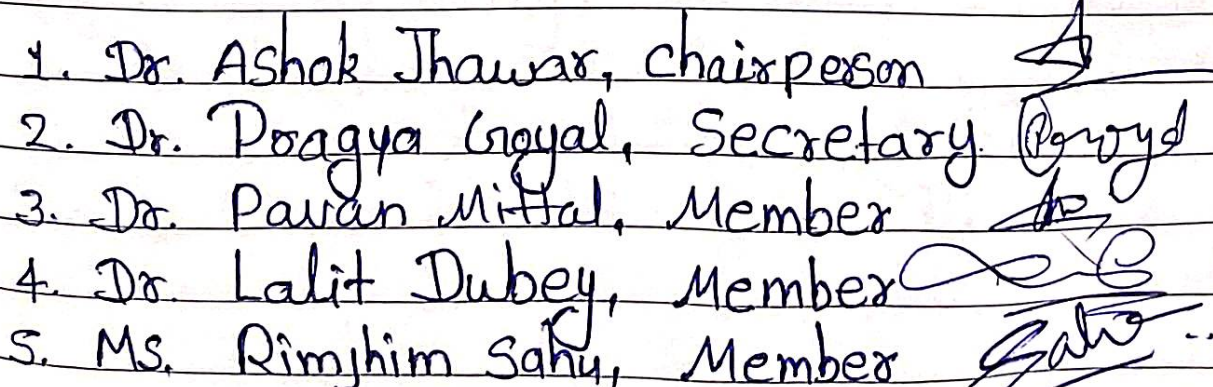 1. Dr. Ashok Jhawar, Chairperson
2. Dr. Pragya Goyal, Secretary.
3. Dr. Pavan Mittal, Member
4. Dr. Lalit Dubey, Member
5. Ms. Rimjhim Sahu, Member